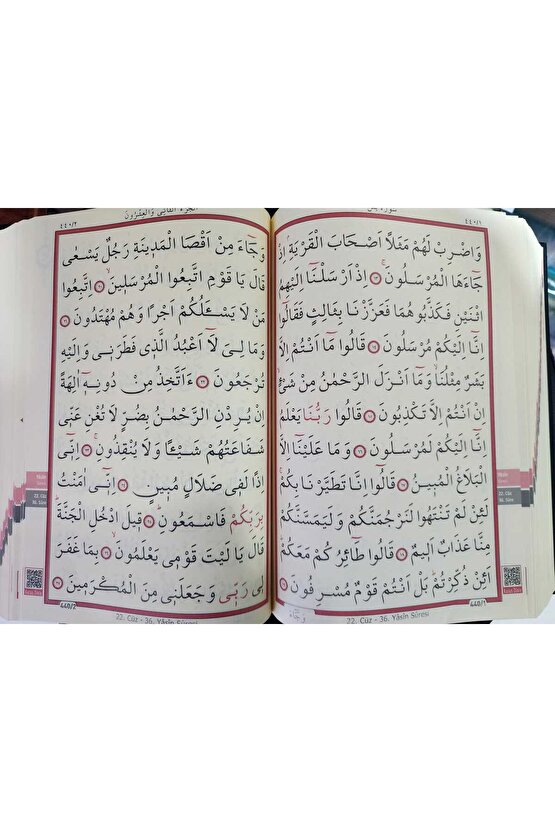 ٤٤٠/١
سورة يس
وَاضْرِبْ لَهُمْ مَثَلًا اَصْحَابَ الْقَرْيَةِ اِذْ
جَاءَهَا الْمُرْسَلُونَ ۝١٣ اِذْ اَرْسَلْنَا اِلَيْهِمُ
اثْنَيْنِ فَكَذَّبُوهُمَا فَعَزَّزْنَا بِثَالِثٍ فَقَالُوا
اِنَّا اِلَيْكُمْ مُرْسَلُونَ ۝١٤ قَالُوا مَا اَنْتُمْ اِلَّا
بَشَرٌ مِثْلُنَا وَمَا اَنْزَلَ الرَّحْمٰنُ مِنْ شَيْءٍ
اِنْ اَنْتُمْ اِلَّا تَكْذِبُونَ ۝١٥ قَالُوا رَبُّنَا يَعْلَمُ
اِنَّا اِلَيْكُمْ لَمُرْسَلُونَ ۝١٦ وَمَا عَلَيْنَا اِلَّا
الْبَلَاغُ الْمُبِينُ ۝١٧ قَالُوا اِنَّا تَطَيَّرْنَا بِكُمْ
لَئِنْ لَمْ تَنْتَهُوا لَنَرْجُمَنَّكُمْ وَلَيَمَسَّنَّكُمْ
مِنَّا عَذَابٌ اَلِيمٌ ۝١٨ قَالُوا طَائِرُكُمْ مَعَكُمْ
اَئِنْ ذُكِّرْتُمْ بَلْ اَنْتُمْ قَوْمٌ مُسْرِفُونَ ۝١٩
وَجَاءَ
440/1
22. Cüz - 36. Yâsîn Sûresi
Yâsîn
22. Cüz
36. Sûre
٤٤٠/٢
الجزء الثاني والعشرون
وَجَاءَ مِنْ اَقْصَا الْمَدِينَةِ رَجُلٌ يَسْعٰى
قَالَ يَا قَوْمِ اتَّبِعُوا الْمُرْسَلِينَ ۝٢٠ اِتَّبِعُوا
مَنْ لَا يَسْـَٔلُكُمْ اَجْرًا وَهُمْ مُهْتَدُونَ ۝٢١
وَمَا لِيَ لَا اَعْبُدُ الَّذِي فَطَرَنِي وَاِلَيْهِ
تُرْجَعُونَ ۝٢٢ ءَاَتَّخِذُ مِنْ دُونِهِ اٰلِهَةً
اِنْ يُرِدْنِ الرَّحْمٰنُ بِضُرٍّ لَا تُغْنِ عَنِّي
شَفَاعَتُهُمْ شَيْـًٔا وَلَا يُنْقِذُونِ ۝٢٣ اِنِّي
اِذًا لَفِي ضَلَالٍ مُبِينٍ ۝٢٤ اِنِّي اٰمَنْتُ
بِرَبِّكُمْ فَاسْمَعُونِ ۝٢٥ قِيلَ ادْخُلِ الْجَنَّةَ
قَالَ يَا لَيْتَ قَوْمِي يَعْلَمُونَ ۝٢٦ بِمَا غَفَرَ
لِي رَبِّي وَجَعَلَنِي مِنَ الْمُكْرَمِينَ ۝٢٧
440/2
22. Cüz - 36. Yâsîn Sûresi
Yâsîn
22. Cüz
36. Sûre